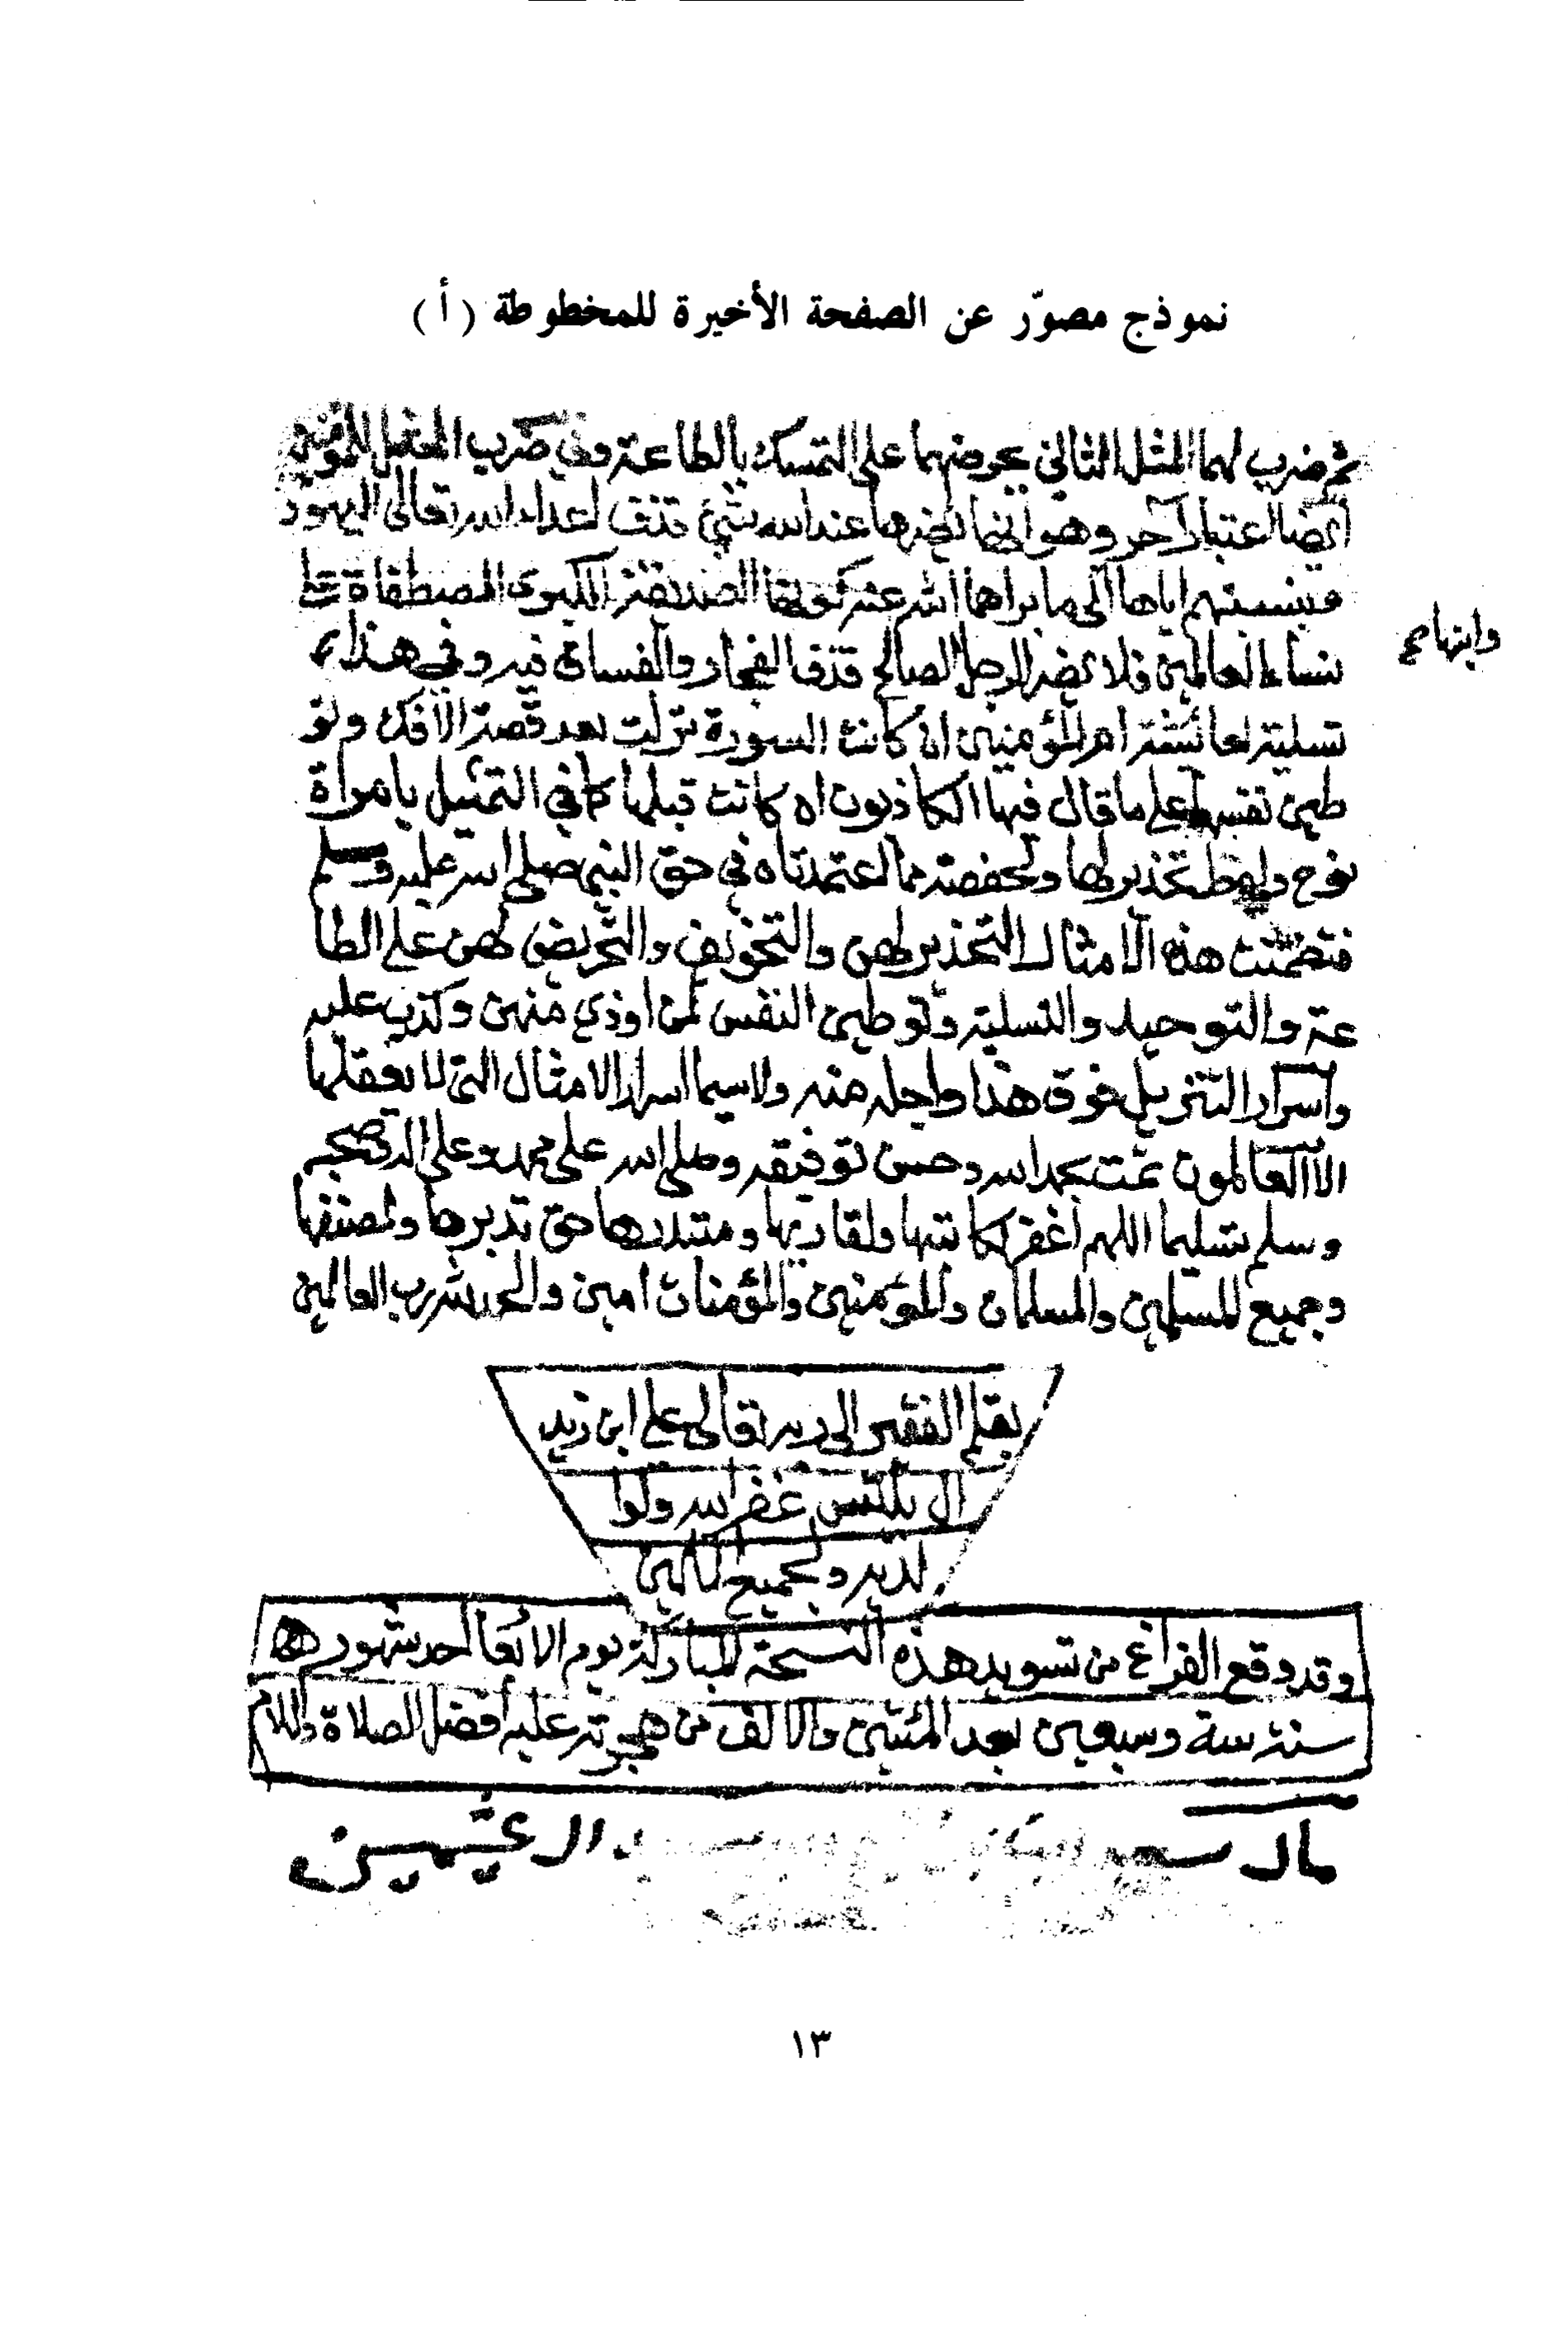 نموذج مصوّر عن الصفحة الأخيرة للمخطوطة (أ)
ثم ضرب لهما المثل الثاني يحرضهما على التمسك بالطاعة وفي ضرب المثل للمؤمنين
ايضا اعتبار آخر وهو انها لم يضرها عند الله شيئ قذف اعداء الله تعالى اليهود
ونسبتهم اياها الى ما براها الله عنه كونها الصديقة الكبرى المصطفاة على
وابنها صح
نساء العالمين فلا يضر الرجل الصالح قذف الفجار والفساق فيه وفي هذا
تسلية لعائشة ام المؤمنين ان كانت السورة نزلت بعد قصة الافك وتو
طين نفسها على ما قال فيها الكاذبون ان كانت قبلها كما في التمثيل بامراة
نوح ولوط تحذير لها ولحفصة مما اعتمدتاه في حق النبي صلى الله عليه وسلم
فتضمنت هذه الامثال التحذير لهن والتخويف والتحريض لهن على الطا
عة والتوحيد والتسلية وتوطين النفس لمن اوذي منهن وكذب عليه
واسرار التنزيل فوق هذا واجل منه ولاسيما اسرار الامثال التي لا يعقلها
الا العالمون تمت بحمد الله وحسن توفيقه وصلى الله على محمد وعلى اله وصحبه
وسلم تسليما اللهم اغفر لكاتبها ولقاريها ومتدبرها حق تدبرها ولمصنفها
وجميع المسلمين والمسلمات والمؤمنين والمؤمنات امين والحمد لله رب العالمين
بقلم الفقير الى ربه تعالى علي ابن زيد
ال غفر الله له ولوا
لديه ولجميع المسلمين
وقد وقع الفراغ من تسويد هذه النسخة المباركة يوم الاربعا احد شهور
سنة ستة وسبعين بعد المئتين والالف من هجرته عليه أفضل الصلاة والسلام
العثيمين
١٣